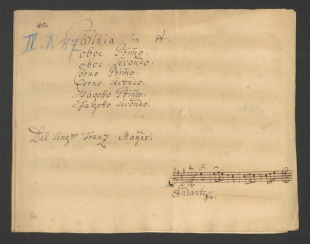 Parthia in A.
oboe Primo.
oboe Secondo.
Corno Primo.
Corno Secondo.
Fagotto Primo.
Fagotto Secondo.
Del Sing:re Franz
Andante